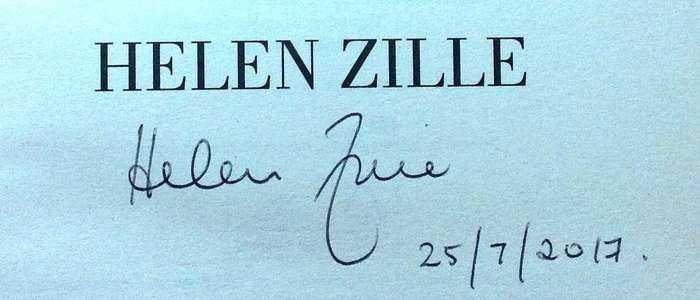 HELEN ZILLE
Helen Zille
25/7/2017.